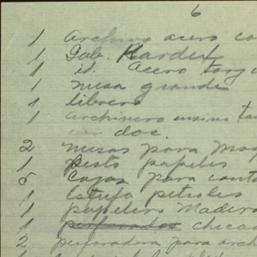 6
1 Archivo acero co
1 Gab. Kardex
1 id. Acero
1 mesa grande
1 librero
1 Archivero
con doc.
2 mesas para
1 Cesto papeles
5 Cajas para
1 Estufa petroleo
1 papelera Madera
1 perforador chica
2 perforadora para arch